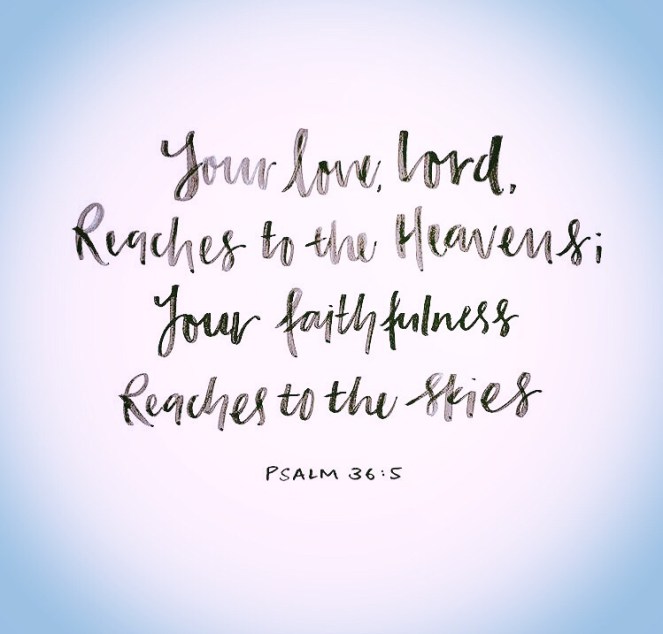 Your love, Lord,
Reaches to the Heavens;
Your faithfulness
Reaches to the skies
PSALM 36:5